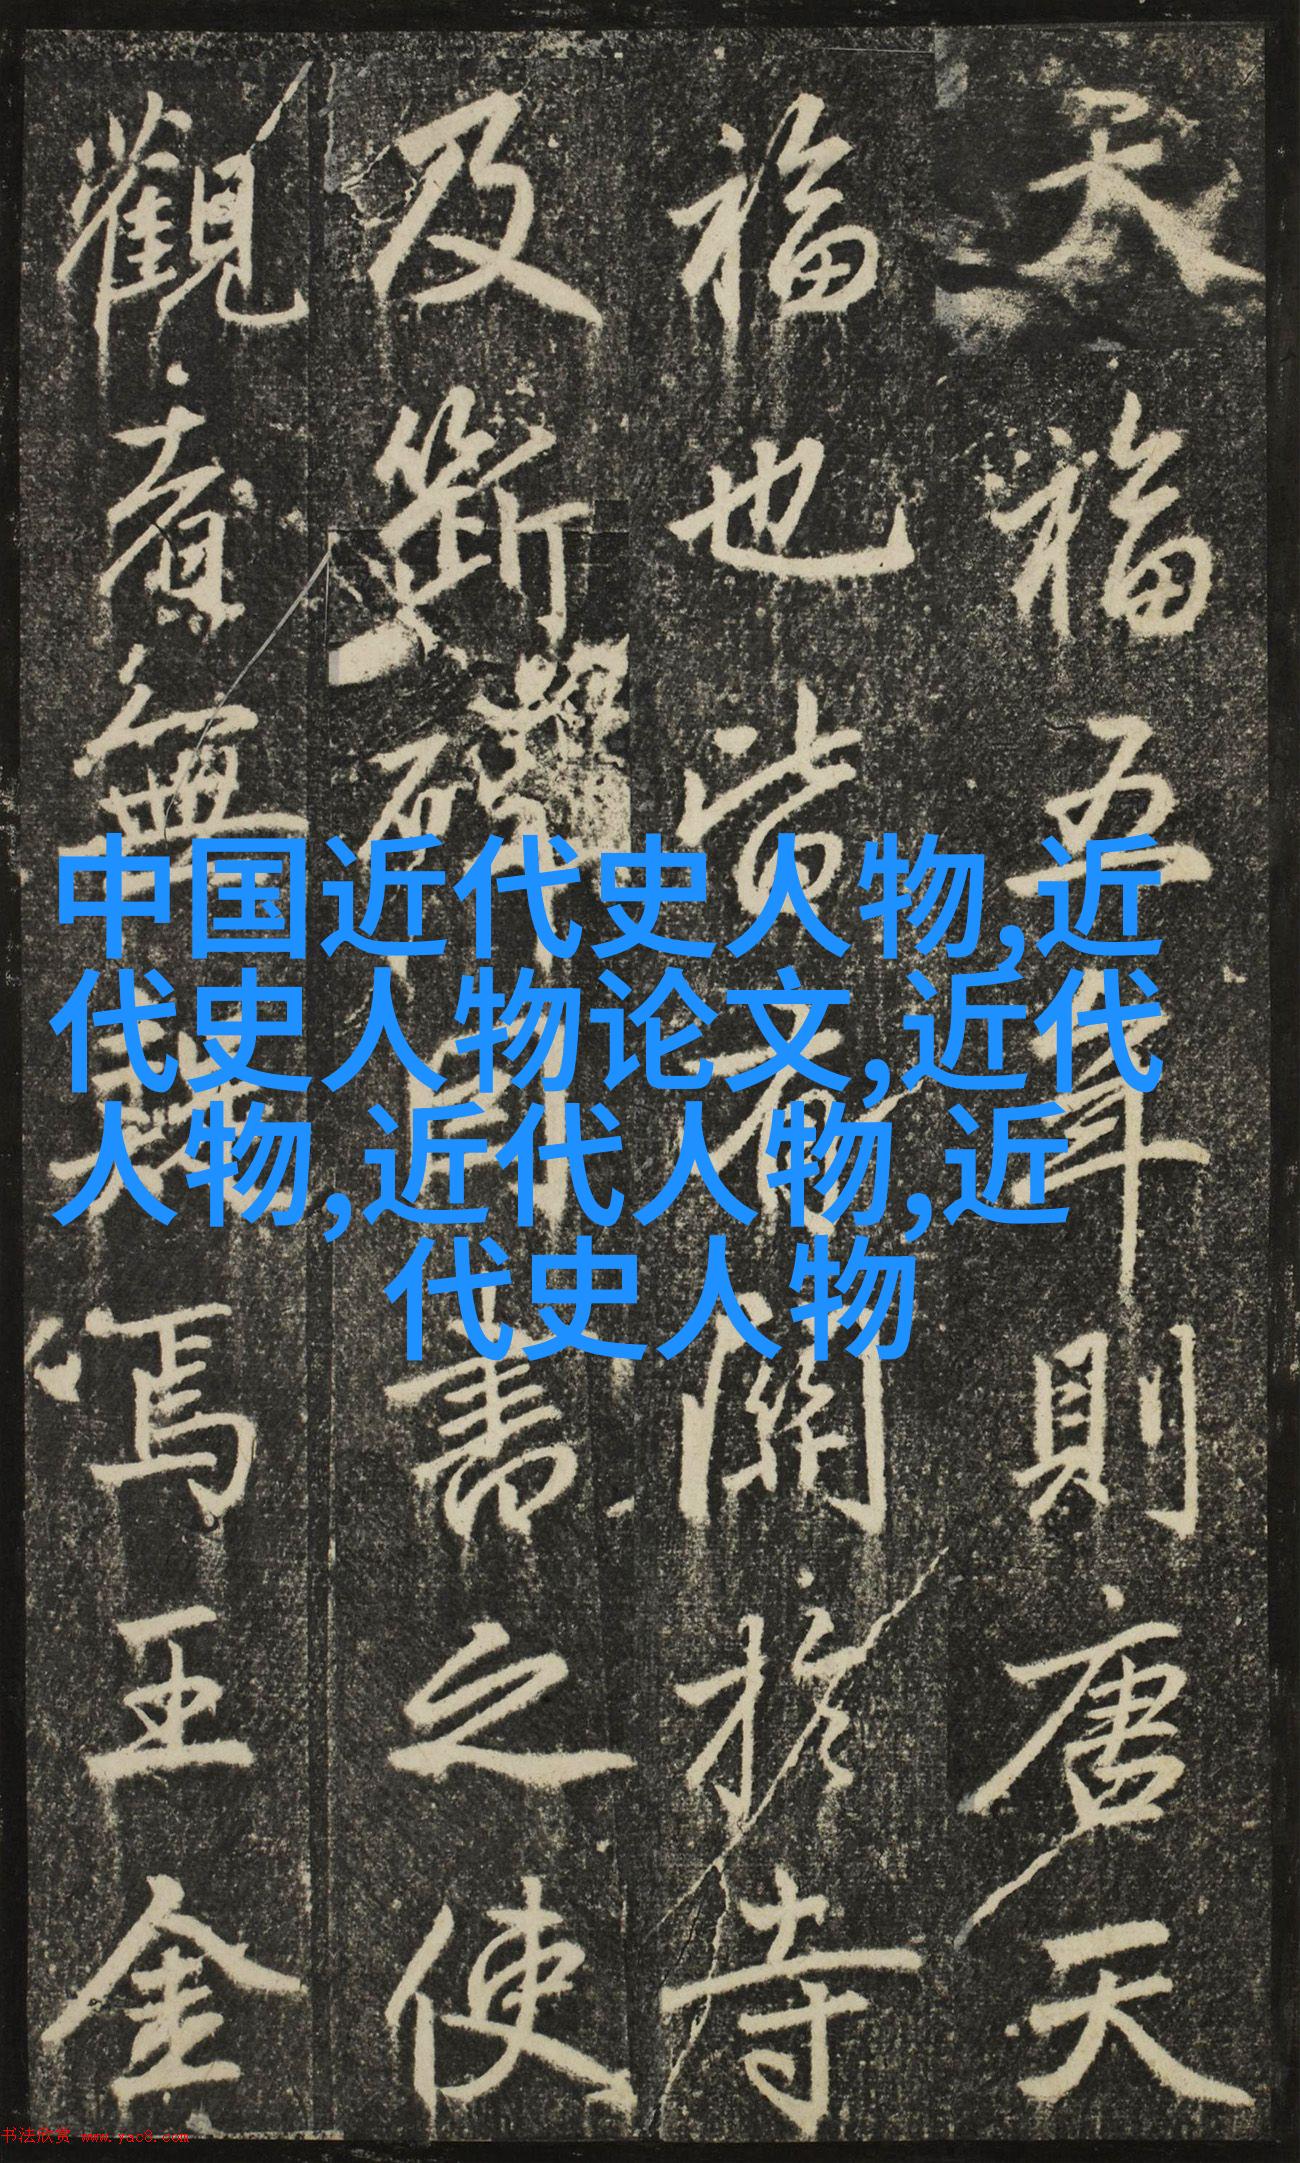 天福五年則唐天
福也皆有關扵寺
及斷碑書之使
觀無焉王金
中国近代史人物,近
代史人物论文,近代
人物,近代人物,近
代史人物
书法欣赏 www.yac8.com